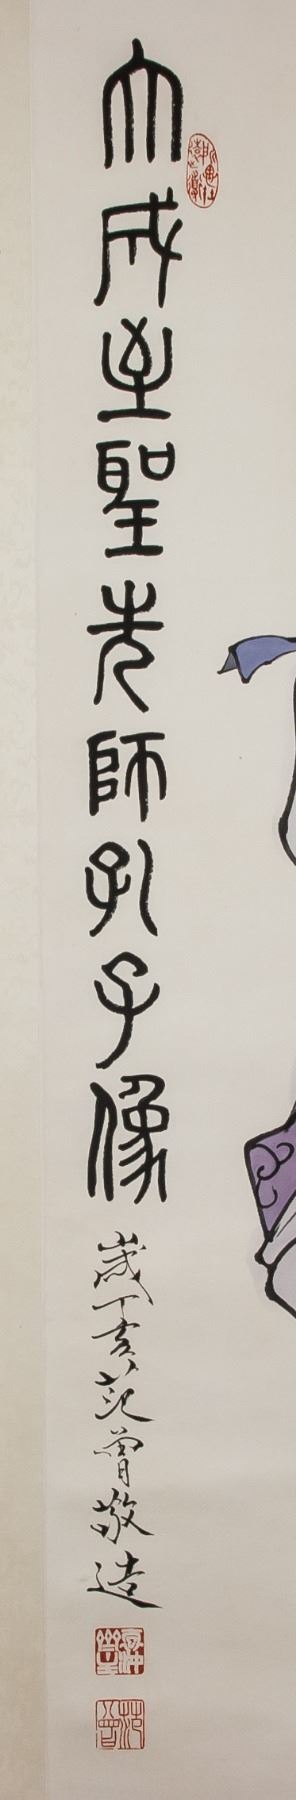 大成至聖先師孔子像
歲丁亥范曾敬造
范曾